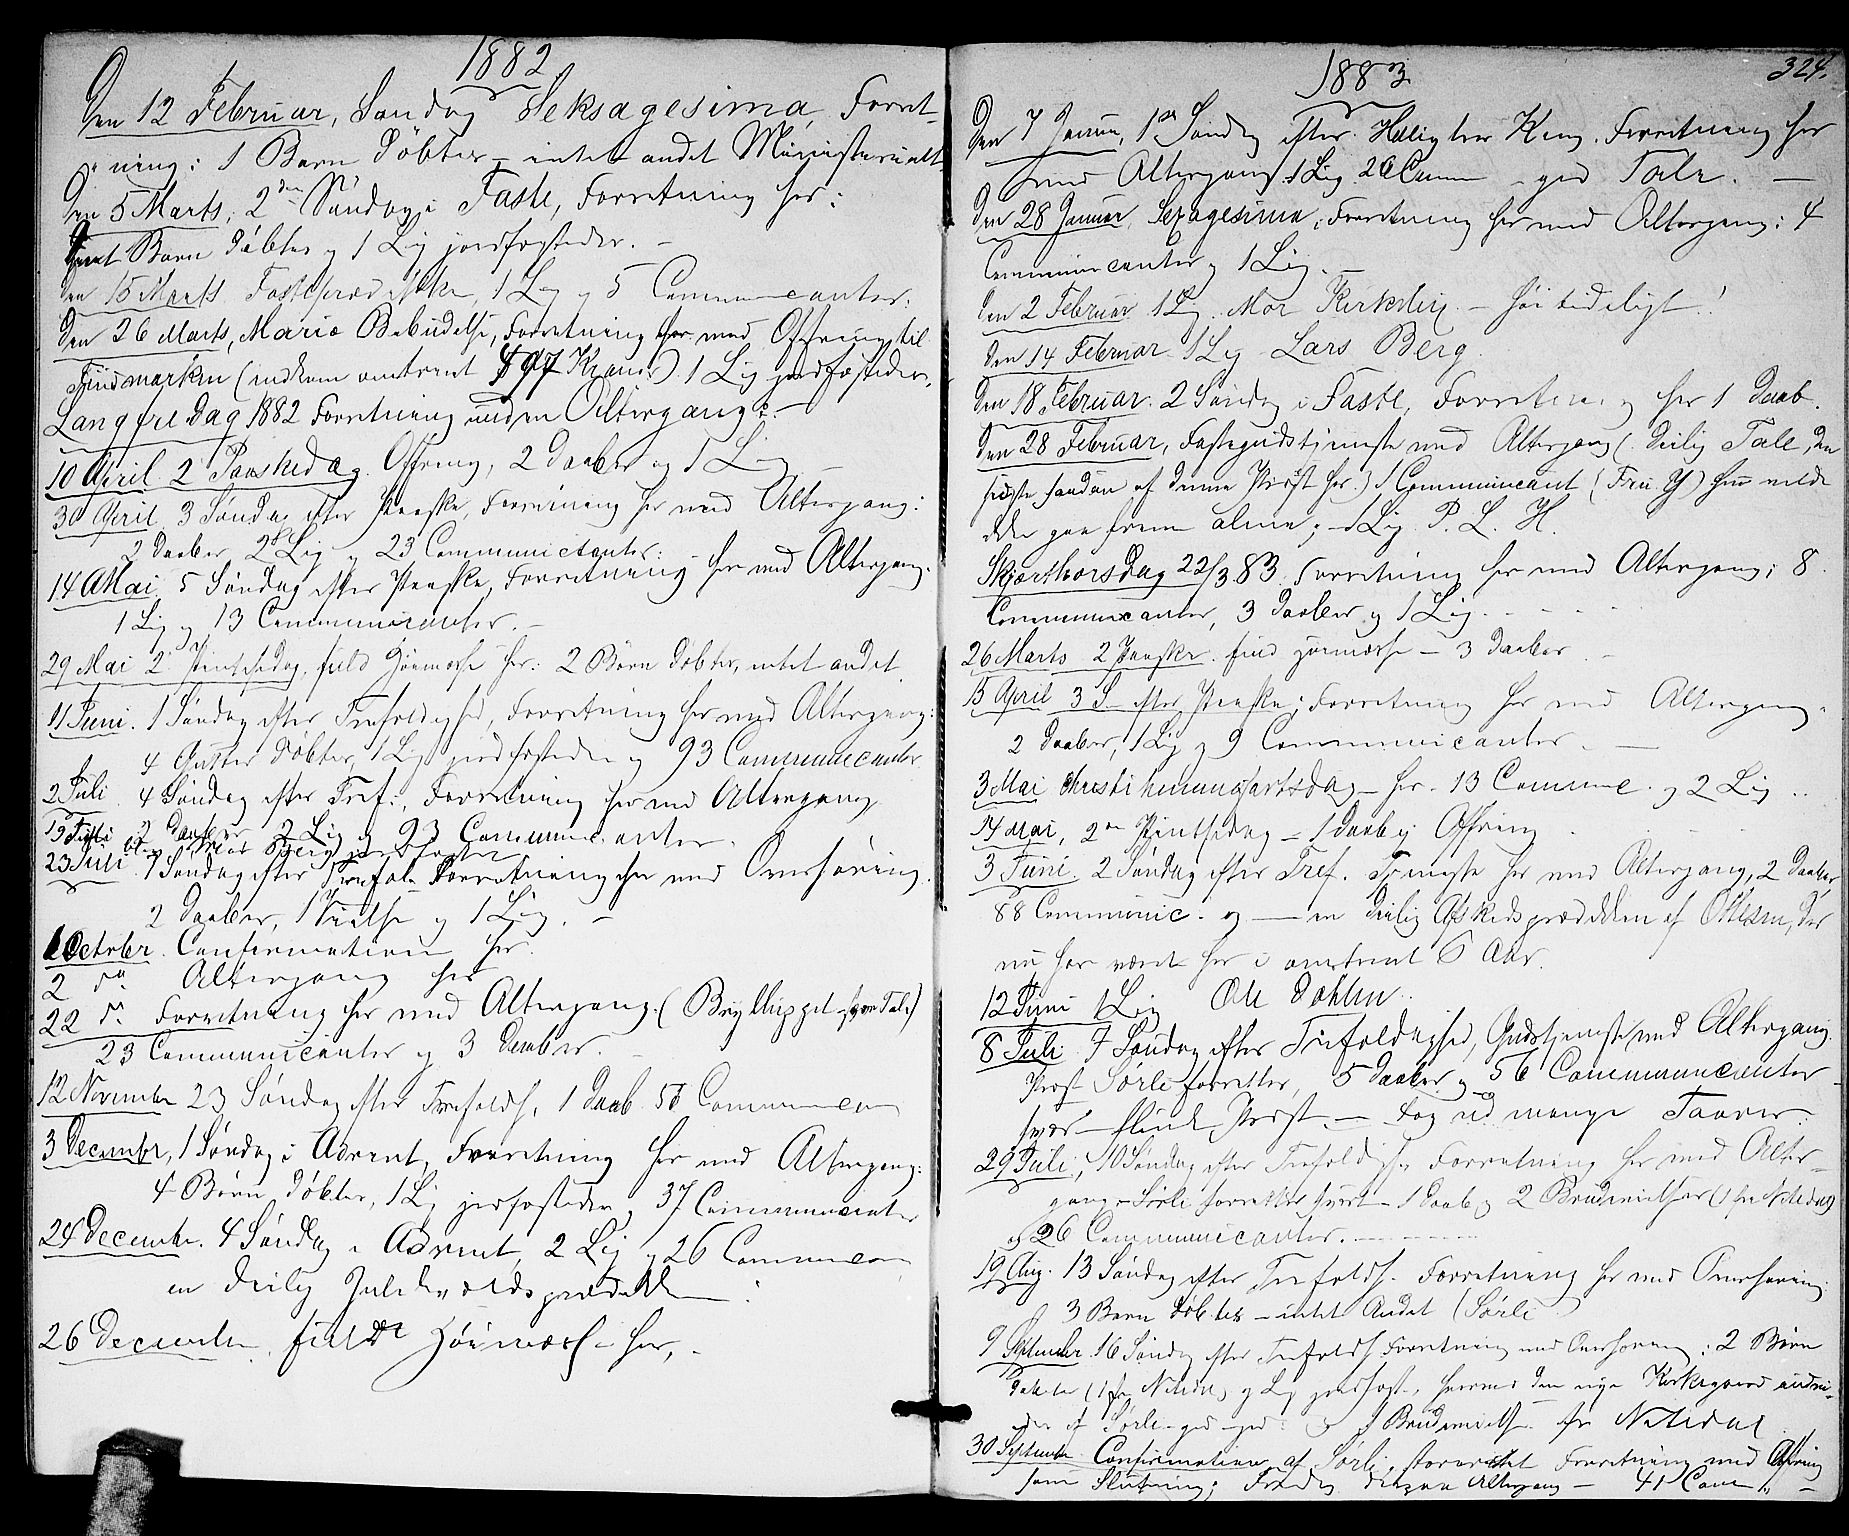 1882
Den 12 Februar, Søndag Seksagesima, Forret-
ning: 1 Barn døbtes - intet andet Ministerielt.
Den 5 Marts, 2den Søndag i Faste, Forretning her:
Børn døbtes og 1 Lig jordfæstedes. -
Den 15 Marts Fasteprædiken, 1 Lig og 5 Communicanter.
Den 26 Marts, Mariæ Bebudelse, Forretning her med Offring til
Findmarken (indkom omtrent 97 Kroner). 1 Lig jordfæstedes.
Langfredag 1882 Forretning uden Altergang: -
10 April 2 Paaskedag. Offring, 2 Daaber og 1 Lig -
30 April 3 Søndag efter Paaske, Forretning her med Altergang:
2 Daaber 2 Lig og 23 Communicanter: -
14 Mai 5 Søndag efter Paaske, Forretning her med Altergang.
1 Lig og 13 Communicanter. -
29 Mai 2 Pintsedag, fuld Høimesse her: 2 Børn døbtes, intet andet.
11 Juni. 1 Søndag efter Trefoldighed, Forretning her med Altergang:
4 Gutter døbtes, 1 Lig jordfæstedes og 93 Communicanter
2 Juli 4 Søndag efter Tref., Forretning her med Altergang
2 Daaber 2 Lig og 93 Communicanter.
19 Juli Berg jordfæstet
23 Juli 7 Søndag efter Trefol. Forretning her med Overhøring.
2 Daaber, 1 Vielse og 1 Lig. -
1 October. Confirmation her.
2 do Altergang her
22 do Forretning her med Altergang. (Brylluppet - Tale)
23 Communicanter og 3 Daaber.
12 November 23 Søndag efter Trefoldh. 1 Daab 56 Communican
3 December, 1 Søndag i Advent, Forretning her med Altergang:
4 Børn døbtes, 1 Lig jordfæstedes og 37 Communicanter
24 December. 4 Søndag i Advent, 2 Lig og 26 Communican
en deilig Juleqvældsprædiken.
26 December, fuld Høimesse her, -
1883
324.
Den 7 Januar, 1ste Søndag efter Hellig tre Kong. Forretning her
med Altergang 1 Lig 26 Comm - god Tale. -
Den 28 Januar, Sexagesima, Forretning her med Altergang: 4
Communicanter og 1 Lig. -
Den 2 Februar 1 Lig. Mor Kirkelig - høitideligt!
Den 14 Februar 1 Lig Lars Berg
Den 18 Februar. 2 Søndag i Faste, Forretning her 1 Daab.
Den 28 Februar, Fastegudstjeneste med Altergang (deilig Tale, den
sidste saadan af denne Præst her.) 1 Communicant (Fru Y) hun vilde
ikke gaa frem alene; - 1 Lig P. L. H.
Skjærthorsdag 22/3 83. Forretning her med Altergang; 8
Communicanter, 3 Daaber og 1 Lig. - - -
26 Marts 2 Paaske. fuld Høimesse - 3 Daaber. -
15 April 3 S. efter Paaske; Forretning her med Altergang.
2 Daaber, 1 Lig og 9 Communicanter. -
3 Mai Christi himmelfartsdag - her - 13 Commune. og 2 Lig ..
14 Mai, 2en Pintsedag - 1 Daab og Offring
3 Juni. 2 Søndag efter Tref. Tjeneste her med Altergang, 2 Daaber
88 Communic. og - en deilig Afskedsprædiken af Ottesen, der
nu har været her i omtrent 6 Aar.
12 Juni 1 Lig Ole Dahlen.
8 Juli 7 Søndag efter Trefoldighed, Gudstjeneste med Altergang.
Præst Sørli forretter, 5 Daaber og 56 Communicanter -
svær flink Præst. - tog ud mange Taarer.
29 Juli, 10 Søndag efter Trefoldigh. Forretning her med Alter-
gang - Sørli forretter svært - 1 Daab og 2 Brudevielser (1 fra Nitedal)
og 26 Communicanter. - - -
19 Aug. 13 Søndag efter Trefoldh. Forretning her med Overhøring.
3 Barn døbtes - intet Andet (Sørli
9 September 16 Søndag efter Trefoldh Forretning med Overhøring: 2 Børn
døbte (1 fra Nitedal) og Lig jordfæst., hvorved den nye Kirkegaard indvi-
edes af Sørli - god - god: og 1 Brudevielse fra Nitedal
30 September Confirmation af Sørli, Forretning med Offring
som Slutning; Fredag Altergang - 41 Com -